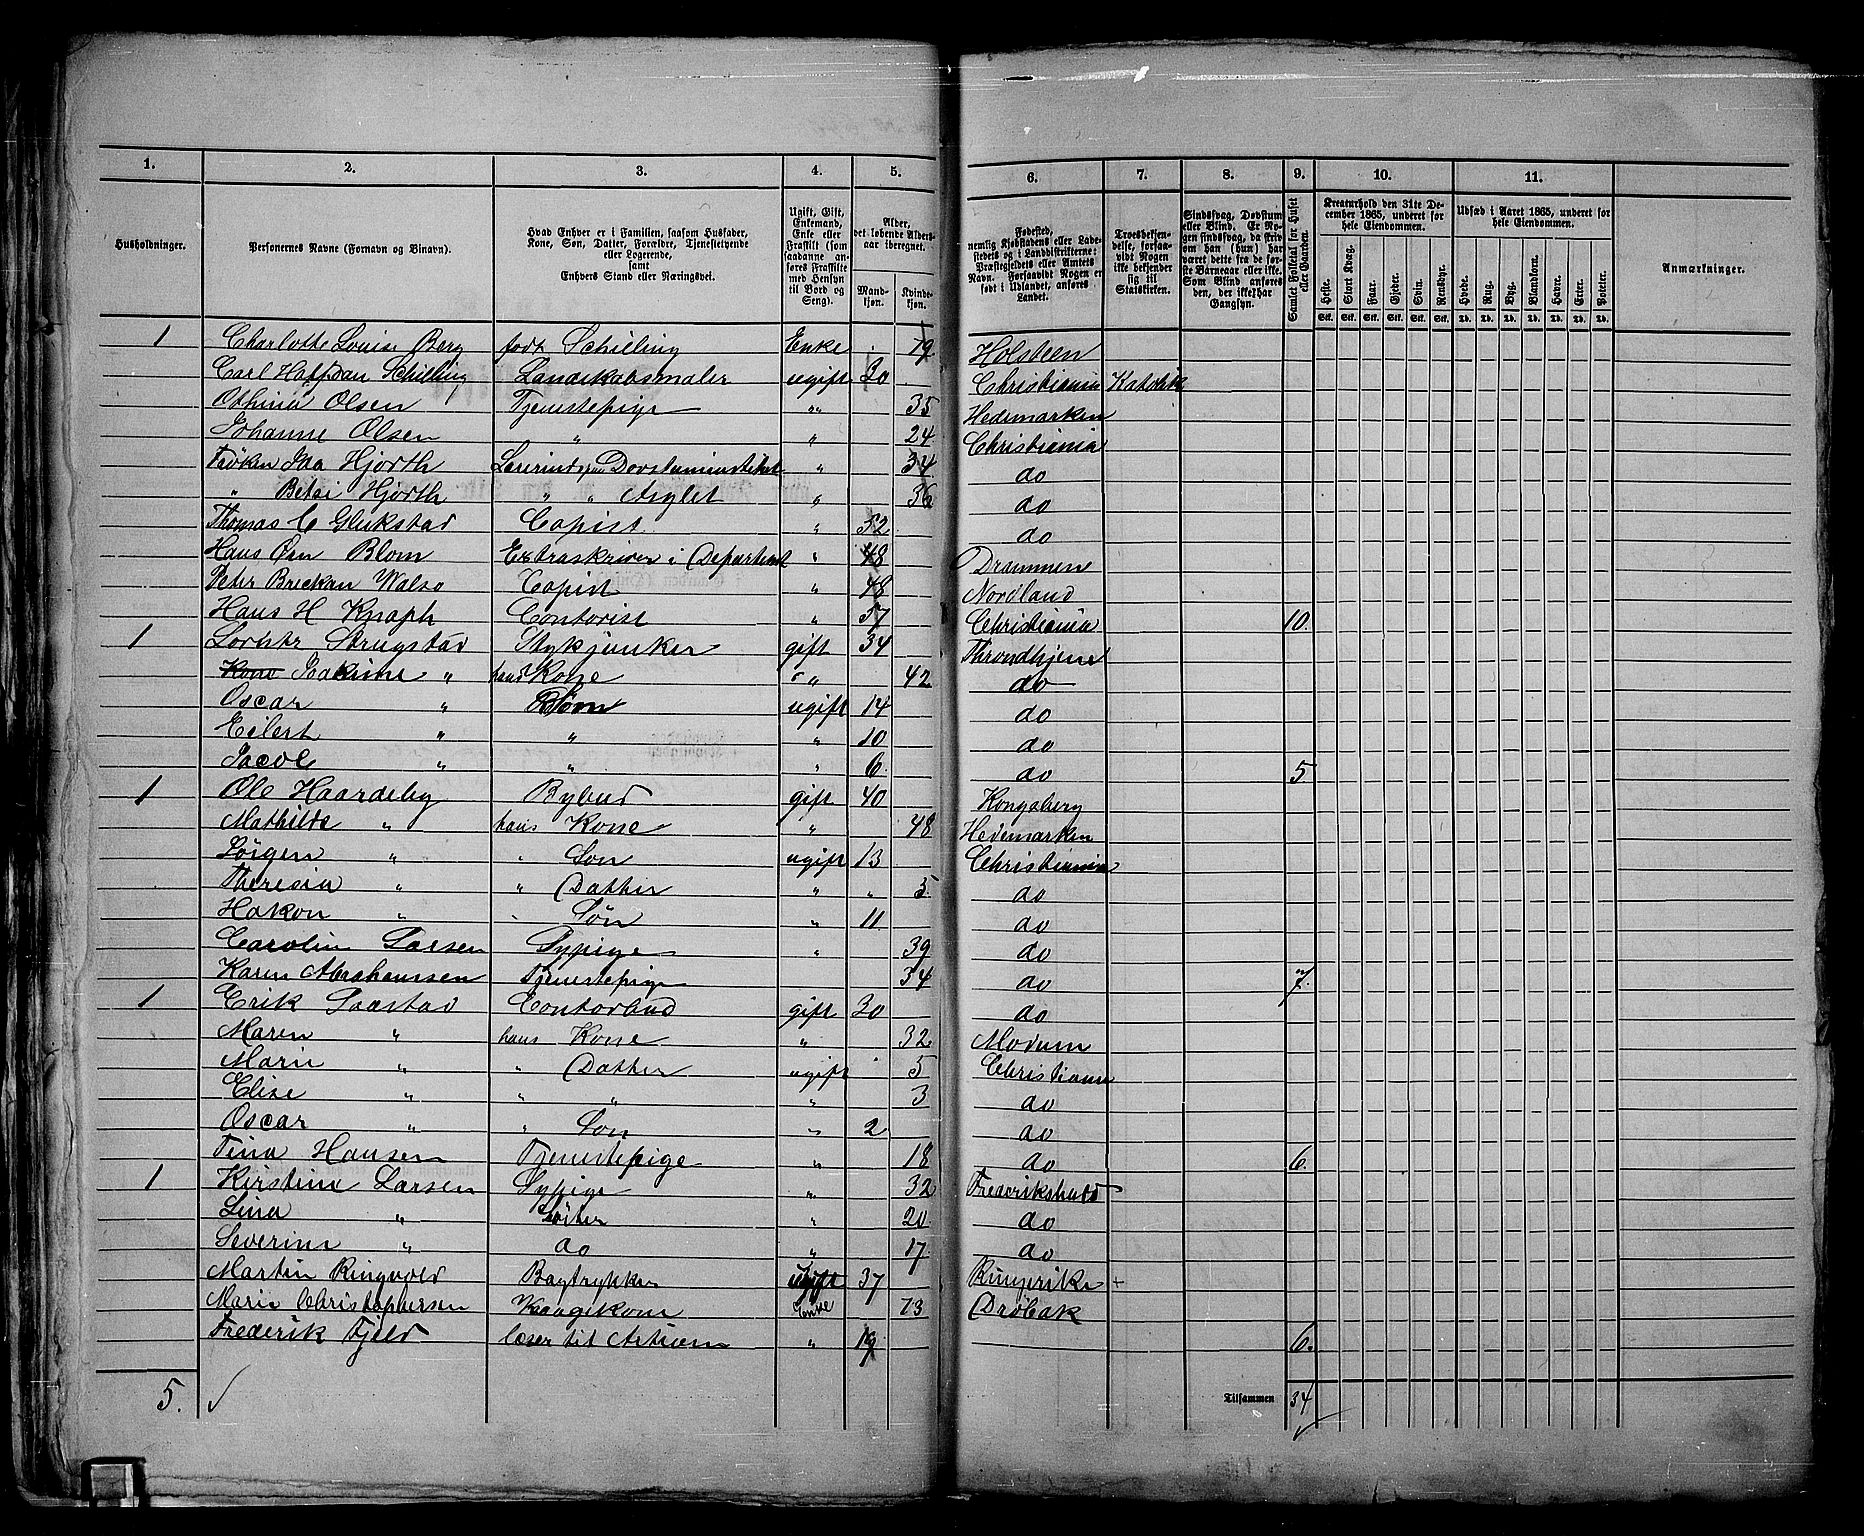 1. 2. 3. 4. 5. 6. 7. 8. 9. 10. 11.
Husholdninger.
Personernes Navne (Fornavn og Binavn).
Hvad Enhver er i Familien, saasom Husfader, Kone, Søn, Datter, Forældre, Tjenestetyende eller Logerende, samt Enhvers Stand eller Næringsvei.
Ugift, Gift, Enkemand, Enke eller Fraskilt (som saadanne anføres Fraskilte med Hensyn til Bord og Seng).
Alder, det løbende Aldersaar iberegnet.
Mandkjøn. Kvindekjøn.
Fødested, nemlig Kjøbstadens eller Ladestedets og i Landdistrikterne: Præstegjeldets eller Amtets Navn. Forsaavidt Nogen er født i Udlandet, anføres Landet.
Troesbekjendelse, forsaavidt Nogen ikke bekjender sig til Statskirken.
Sindssvag, Døvstum eller Blind. Er Nogen sindssvag, da skrives om han (hun) har været dette fra de første Barneaar eller ikke. Som Blind anføres den, der ikke har Gangsyn.
Samlet Folketal for Huset eller Gaarden.
Kreaturhold den 31te December 1865, underet for hele Eiendommen.
Heste. Stort Kvæg. Faar. Gjeder. Svin. Rensdyr.
Stk. Stk. Stk. Stk. Stk. Stk.
Udsæd i Aaret 1865, underet for hele Eiendommen.
Hvede. Rug. Byg. Blandkorn. Havre. Erter. Poteter.
Td. Td. Td. Td. Td. Td. Td.
Anmærkninger.
1 Charlotte Louise Berg født Schilling Enke 79 Holsteen
Carl Schilling Landskabsmaler ugift 30 Christiania Katolik
Othina Olsen Tjenestepige " 35 Hedemarken
Johanne Olsen " " 24 Christiania
Frøken Ida Hjorth " 34 do
" Betsi Hjorth " " Asylet " 36 do
Thomas C Glukstad Copist " 52 do
Hans Blom Extraskriver i " 48 Drammen
Peter Copist " 48 Nordland
Hans H Knaph Contorist " 57 Christiania 10.
1 Strugstad Stykjunker gift 34 Throndhjem
Joakime " hans Kone " 42 do
Oscar " Børn ugift 14 do
Eilert " " " 10 do
Jacob " " " 6 do 5.
1 Ole Haardeby Bybud gift 40 Kongsberg
Mathilde " hans Kone " 48 Hedemarken
Jørgen " " Søn ugift 13 Christiania
Theresia " " Datter " " 5 do
Hakon " " Søn " 11 do
Carolin Larsen Sypige " 39 do
Karen Abrahamssen Tjenestepige 34 do 7.
1 Erik Saastad Contorbud gift 30 do
Maren " hans Kone " 32 Modum
Marie " " Datter ugift 5 Christiania
Elise " " " " 3 do
Oscar " " Søn " 2 do
Tina Hansen Tjenestepige " 18 do 6.
1 Kirstine Larsen Sypige " 32 Frederikshald
Lina " Søster " 20 do
Severine " do " 17 do
Martin Ringvold Bogtrykker ugift 37 Ringerike +
Marie Christophersen Enke 73 Drøbak
Frederik Fjeld læser til Artium " 19 6.
5. Tilsammen 34